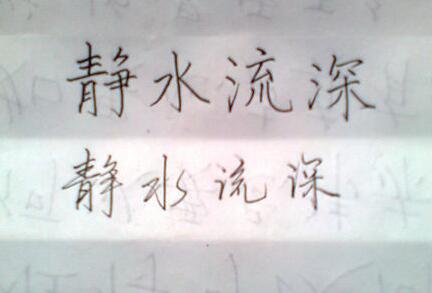 静水流深
静水流深